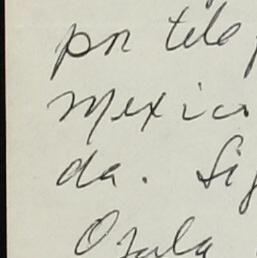 por tele
Mexico
da. Sig
Ojala